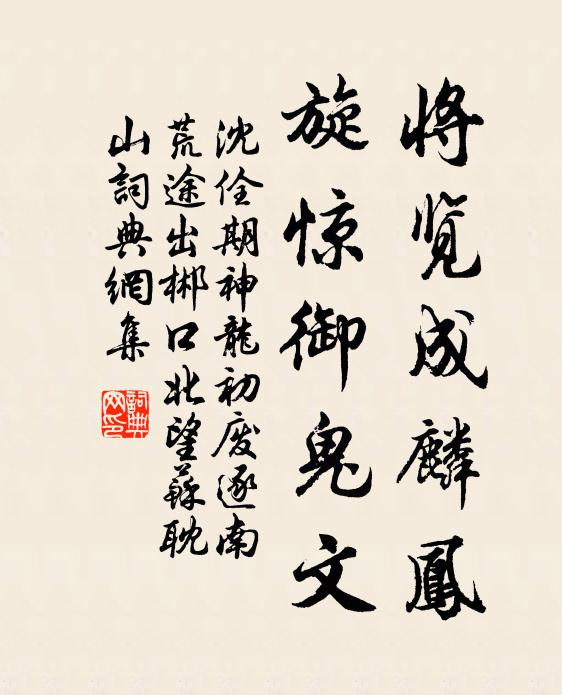 将览成麟鳳
旋惊御鬼文
沈佺期神龍初废逐南
荒途出郴口北望蘇耽
山詞典網集
詞典网印